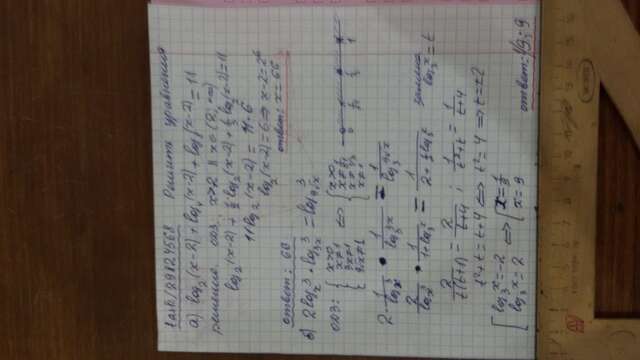 task/29824568 Решить уравнения
а) log₂(x-2)+log₄(x-2)+log₈(x-2)=11
решение. ОДЗ: x>2 || x∈(2;∞)
log₂(x-2)+½log₂(x-2)+⅓log₂(x-2)=11
11log₂(x-2)=11·6
log₂(x-2)=6⇒x-2=2⁶
ответ: x=66
ответ: 66
2log 3 x · log 3 3x = log 3 9√x
ОДЗ: { x>0 ⇔ { x>0
x≠1
3x≠1
9√x≠1
0 1
2· 1/log₃x · 1/log₃3x = 1/log₃9√x
2/log₃x · 1/1+log₃x = 1/2+½log₃x замена log₃x=t
2/t(t+1) = 2/t+4 ; 1/t²+t = 1/t+4
t²+t=t+4 ⇔ t²=4 ⇒ t=±2
[ log₃x=-2 ⇔ [ x=1/9
log₃x=2 x=9
ответ: 1/9; 9